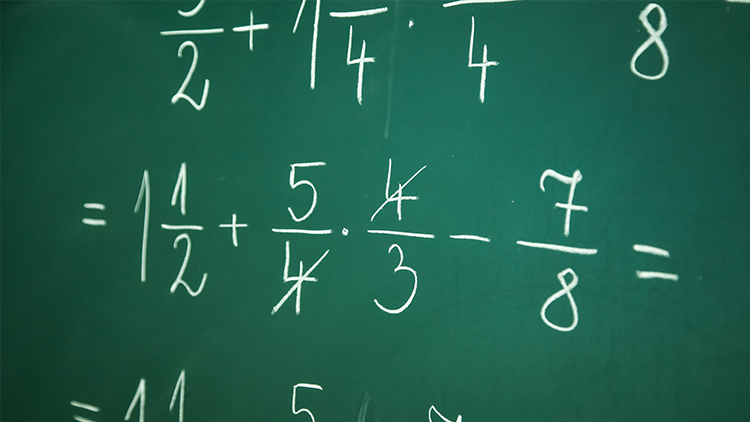 /2 + 1 /4 · /4 8
= 1 1/2 + 5/4 · 4/3 − 7/8 =
= 1 1 5